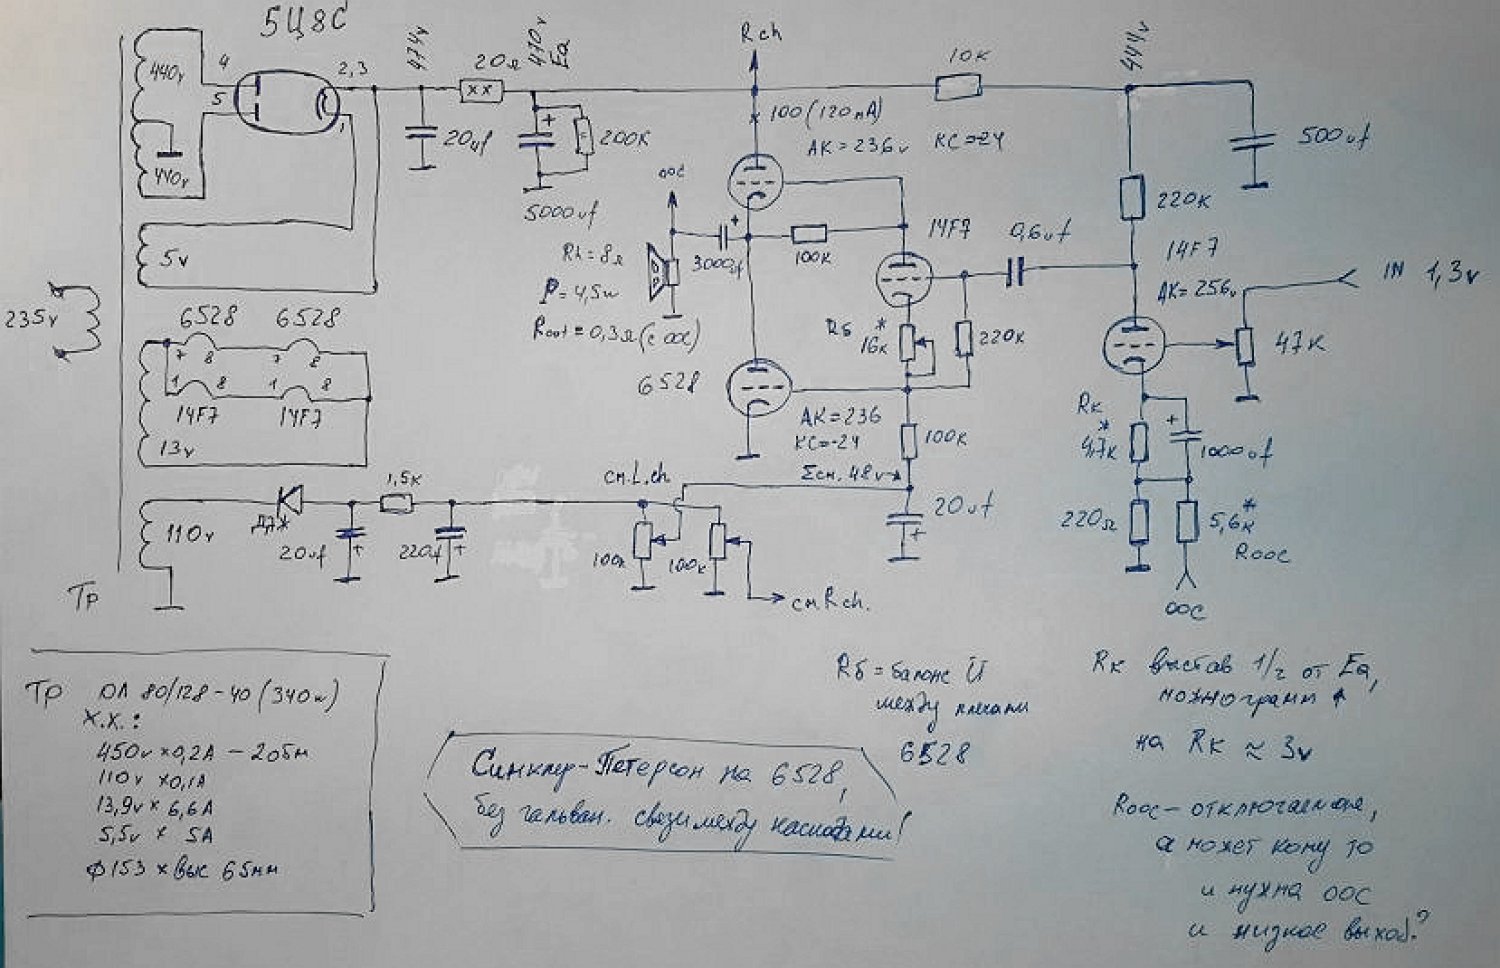 5Ц8С
440v
440v
4
5
2,3
1
474v
20Ω
470v
Ea
20uf
200K
5000uf
Rch
100 (120mA)
АК=236v КС=-24
10K
444v
500uf
220K
оос
3000uf
100K
14F7
0,6uf
14F7
АК=256v
IN 1,3v
47K
Rh=8Ω
P=4,5w
Rout=0,3Ω (с ООС)
Rб *
16K
220K
6528
АК=236
КС=-24
100K
Eсм. 48v
20uf
Rк
*
4,7K
1000uf
220Ω
5,6K
*
Rоос
ООС
5v
235v
6528 6528
7 8 7 8
1 8 1 8
14F7 14F7
13v
110v
Д7Ж
20uf
1,5K
220uf
см.L.ch.
100K
100K
см.R.ch.
Тр
Тр ОЛ 80/128-40 (340w)
Х.Х.:
450v x 0,2A - 2обм
110v x 0,1A
13,9v x 6,6A
5,5v x 5A
ф153 x выс 65мм
Синклер-Петерсон на 6528,
без гальван. связи между каскадами!
Rб = баланс U
между плечами
6528
Rк выстав 1/2 от Ea,
на Rк ≈ 3v
Rоос - отключаемая,
а может кому то
и нужна ООС
и низкое выход.?